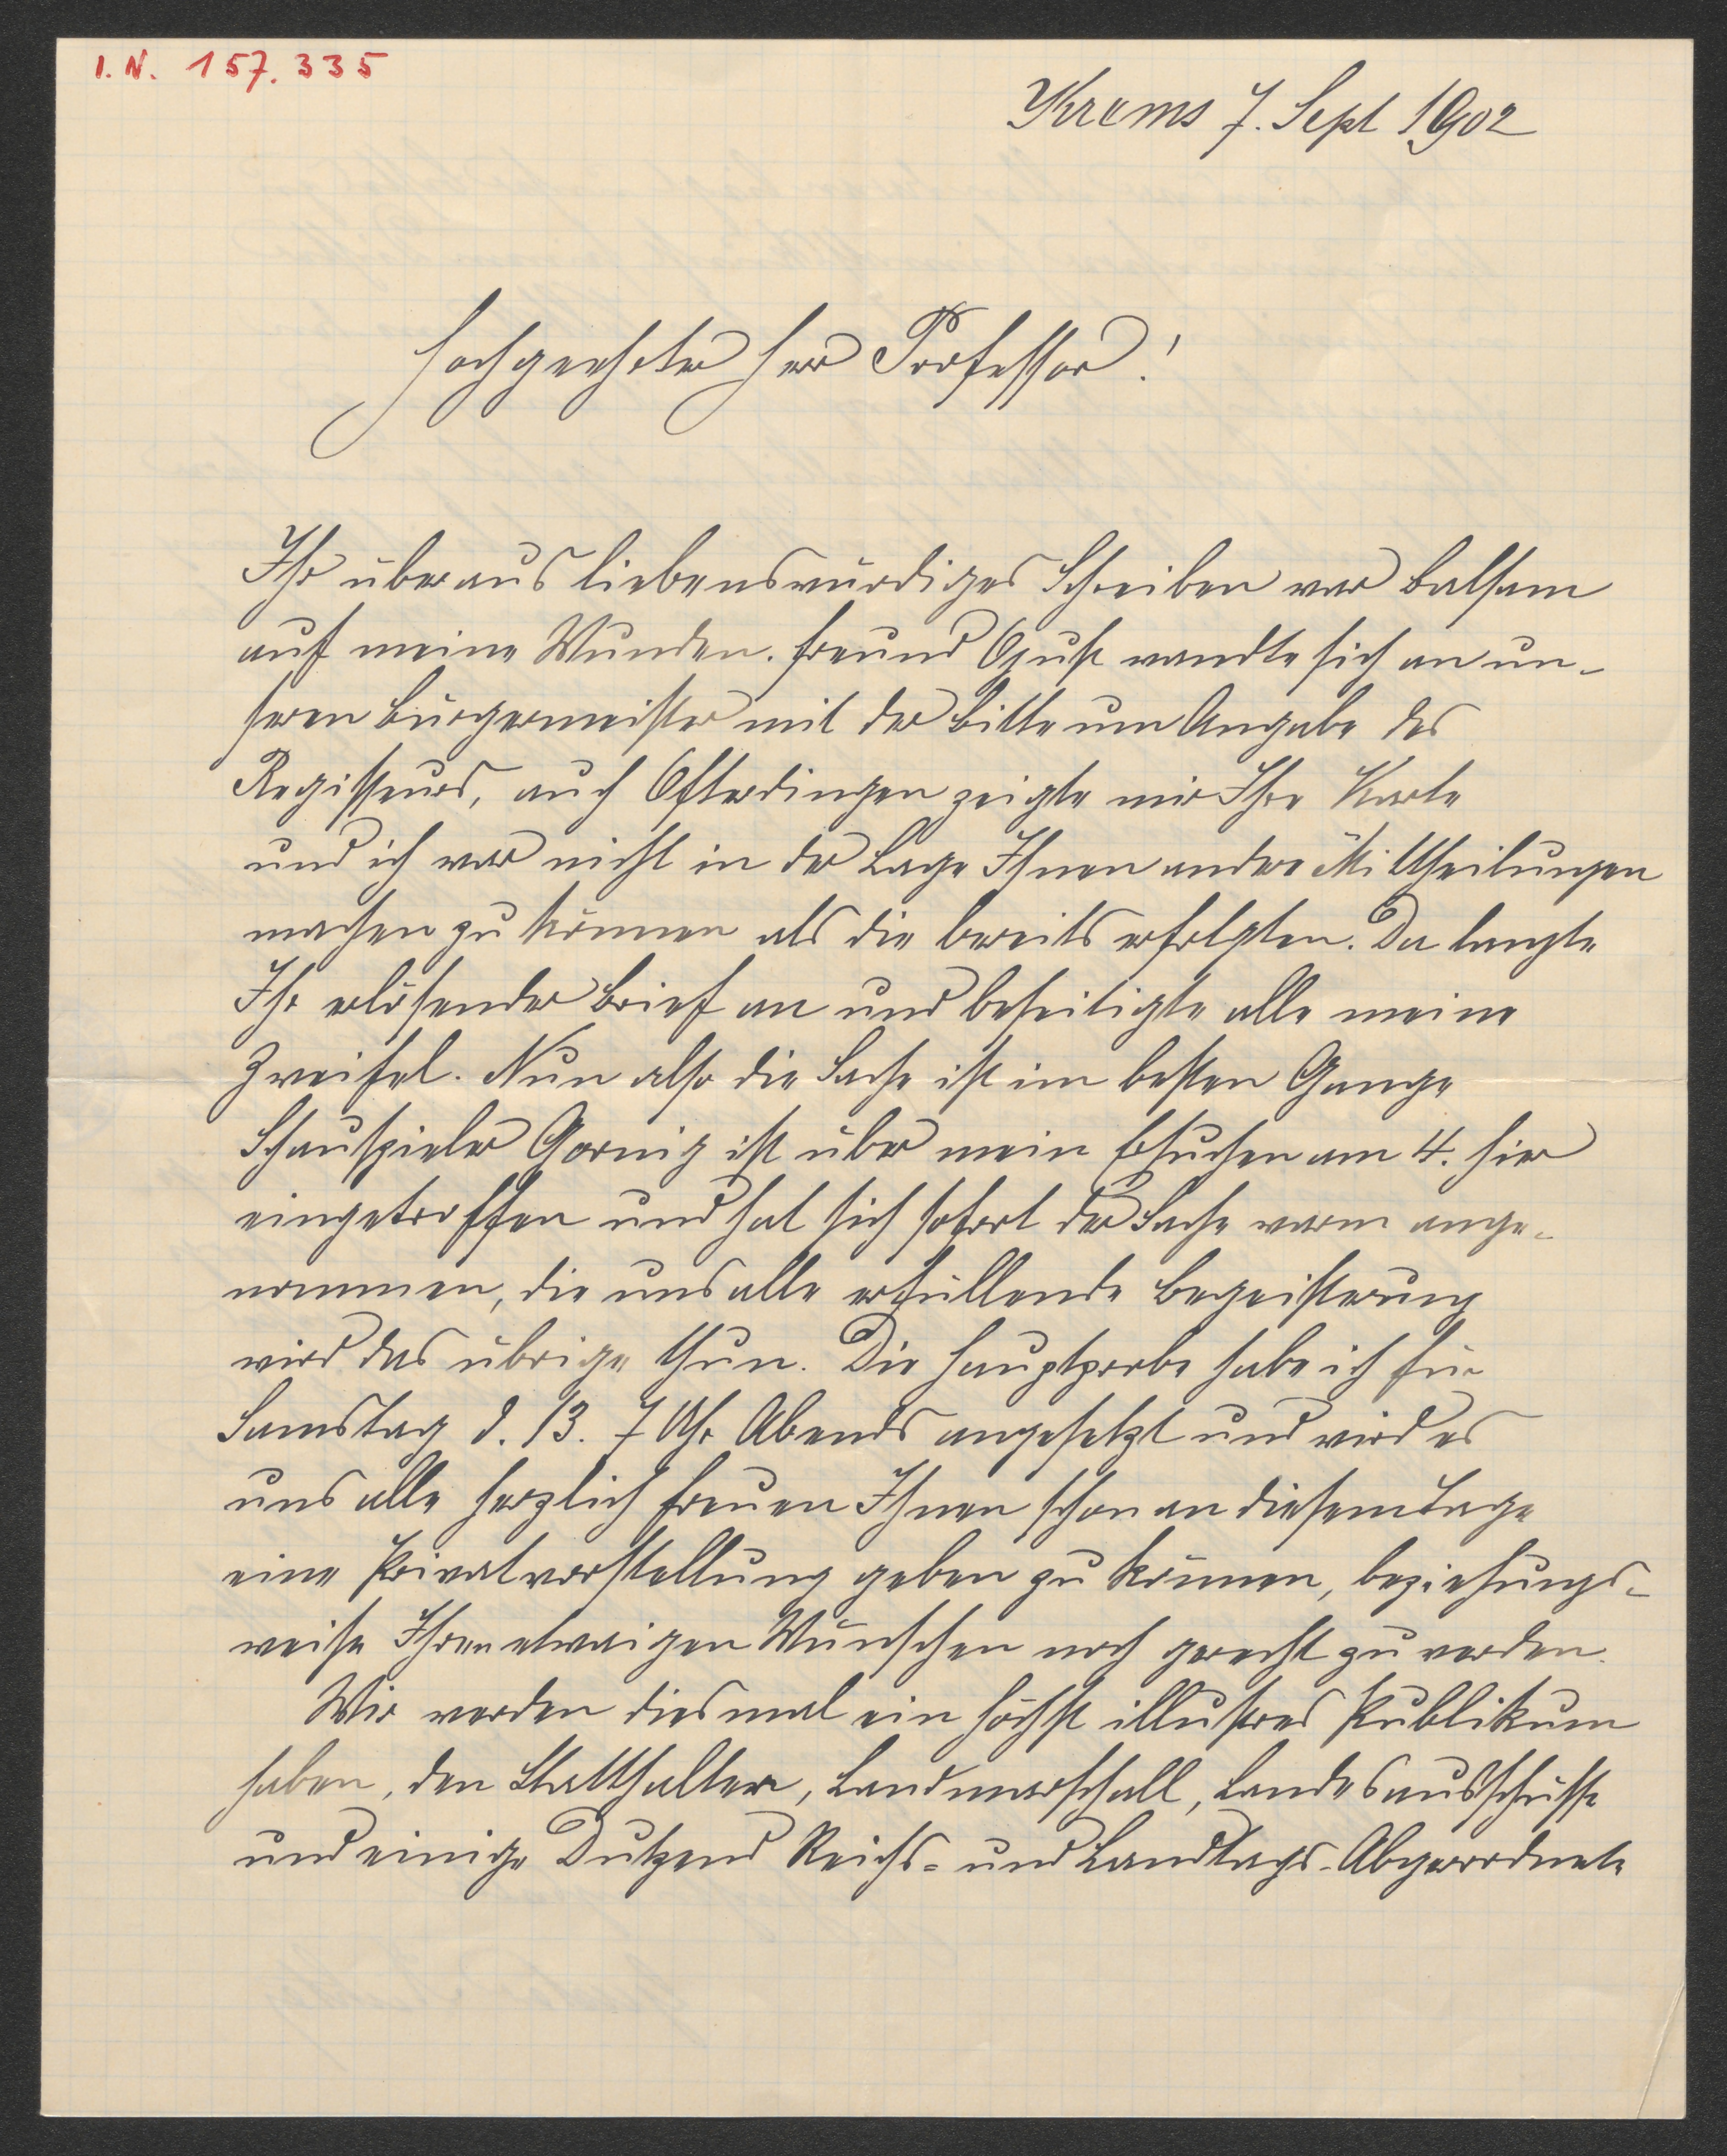 I. N. 157.335
Krems 7. Sept 1902
Hochgeehrter Herr Professor!
Ihr überaus liebenswürdiges Schreiben war Balsam
auf meine Wunden. Freund wandte sich an un-
seren Bürgermeister mit der Bitte um Angabe des
Regisseurs, auch Ofterdingen zeigte mir Ihre Karte
und ich war nicht in der Lage Ihnen andere Mittheilungen
machen zu können als die bereits erfolgten. Da langte
Ihr erlösender Brief an und beseitigte alle meine
Zweifel. Nun also die Sache ist im besten Gange
Schauspieler ist über mein Ersuchen am 4. hier
eingetroffen und hat sich sofort der Sache warm ange-
nommen, die uns alle erfüllende Begeisterung
wird das übrige thun. Die Hauptprobe habe ich für
Samstag d. 13. 7 Uhr Abends angesetzt und wird es
uns alle herzlich freuen Ihnen schon an diesem Tage
eine Privatvorstellung geben zu können, beziehungs-
weise Ihren etwaigen Wünschen noch gerecht zu werden.
Wir werden diesmal ein höchst illustres Publikum
haben, den Statthalter, Landmarschall, Landesausschüsse
und einige Dutzend Reichs- und Landtags-Abgeordnete